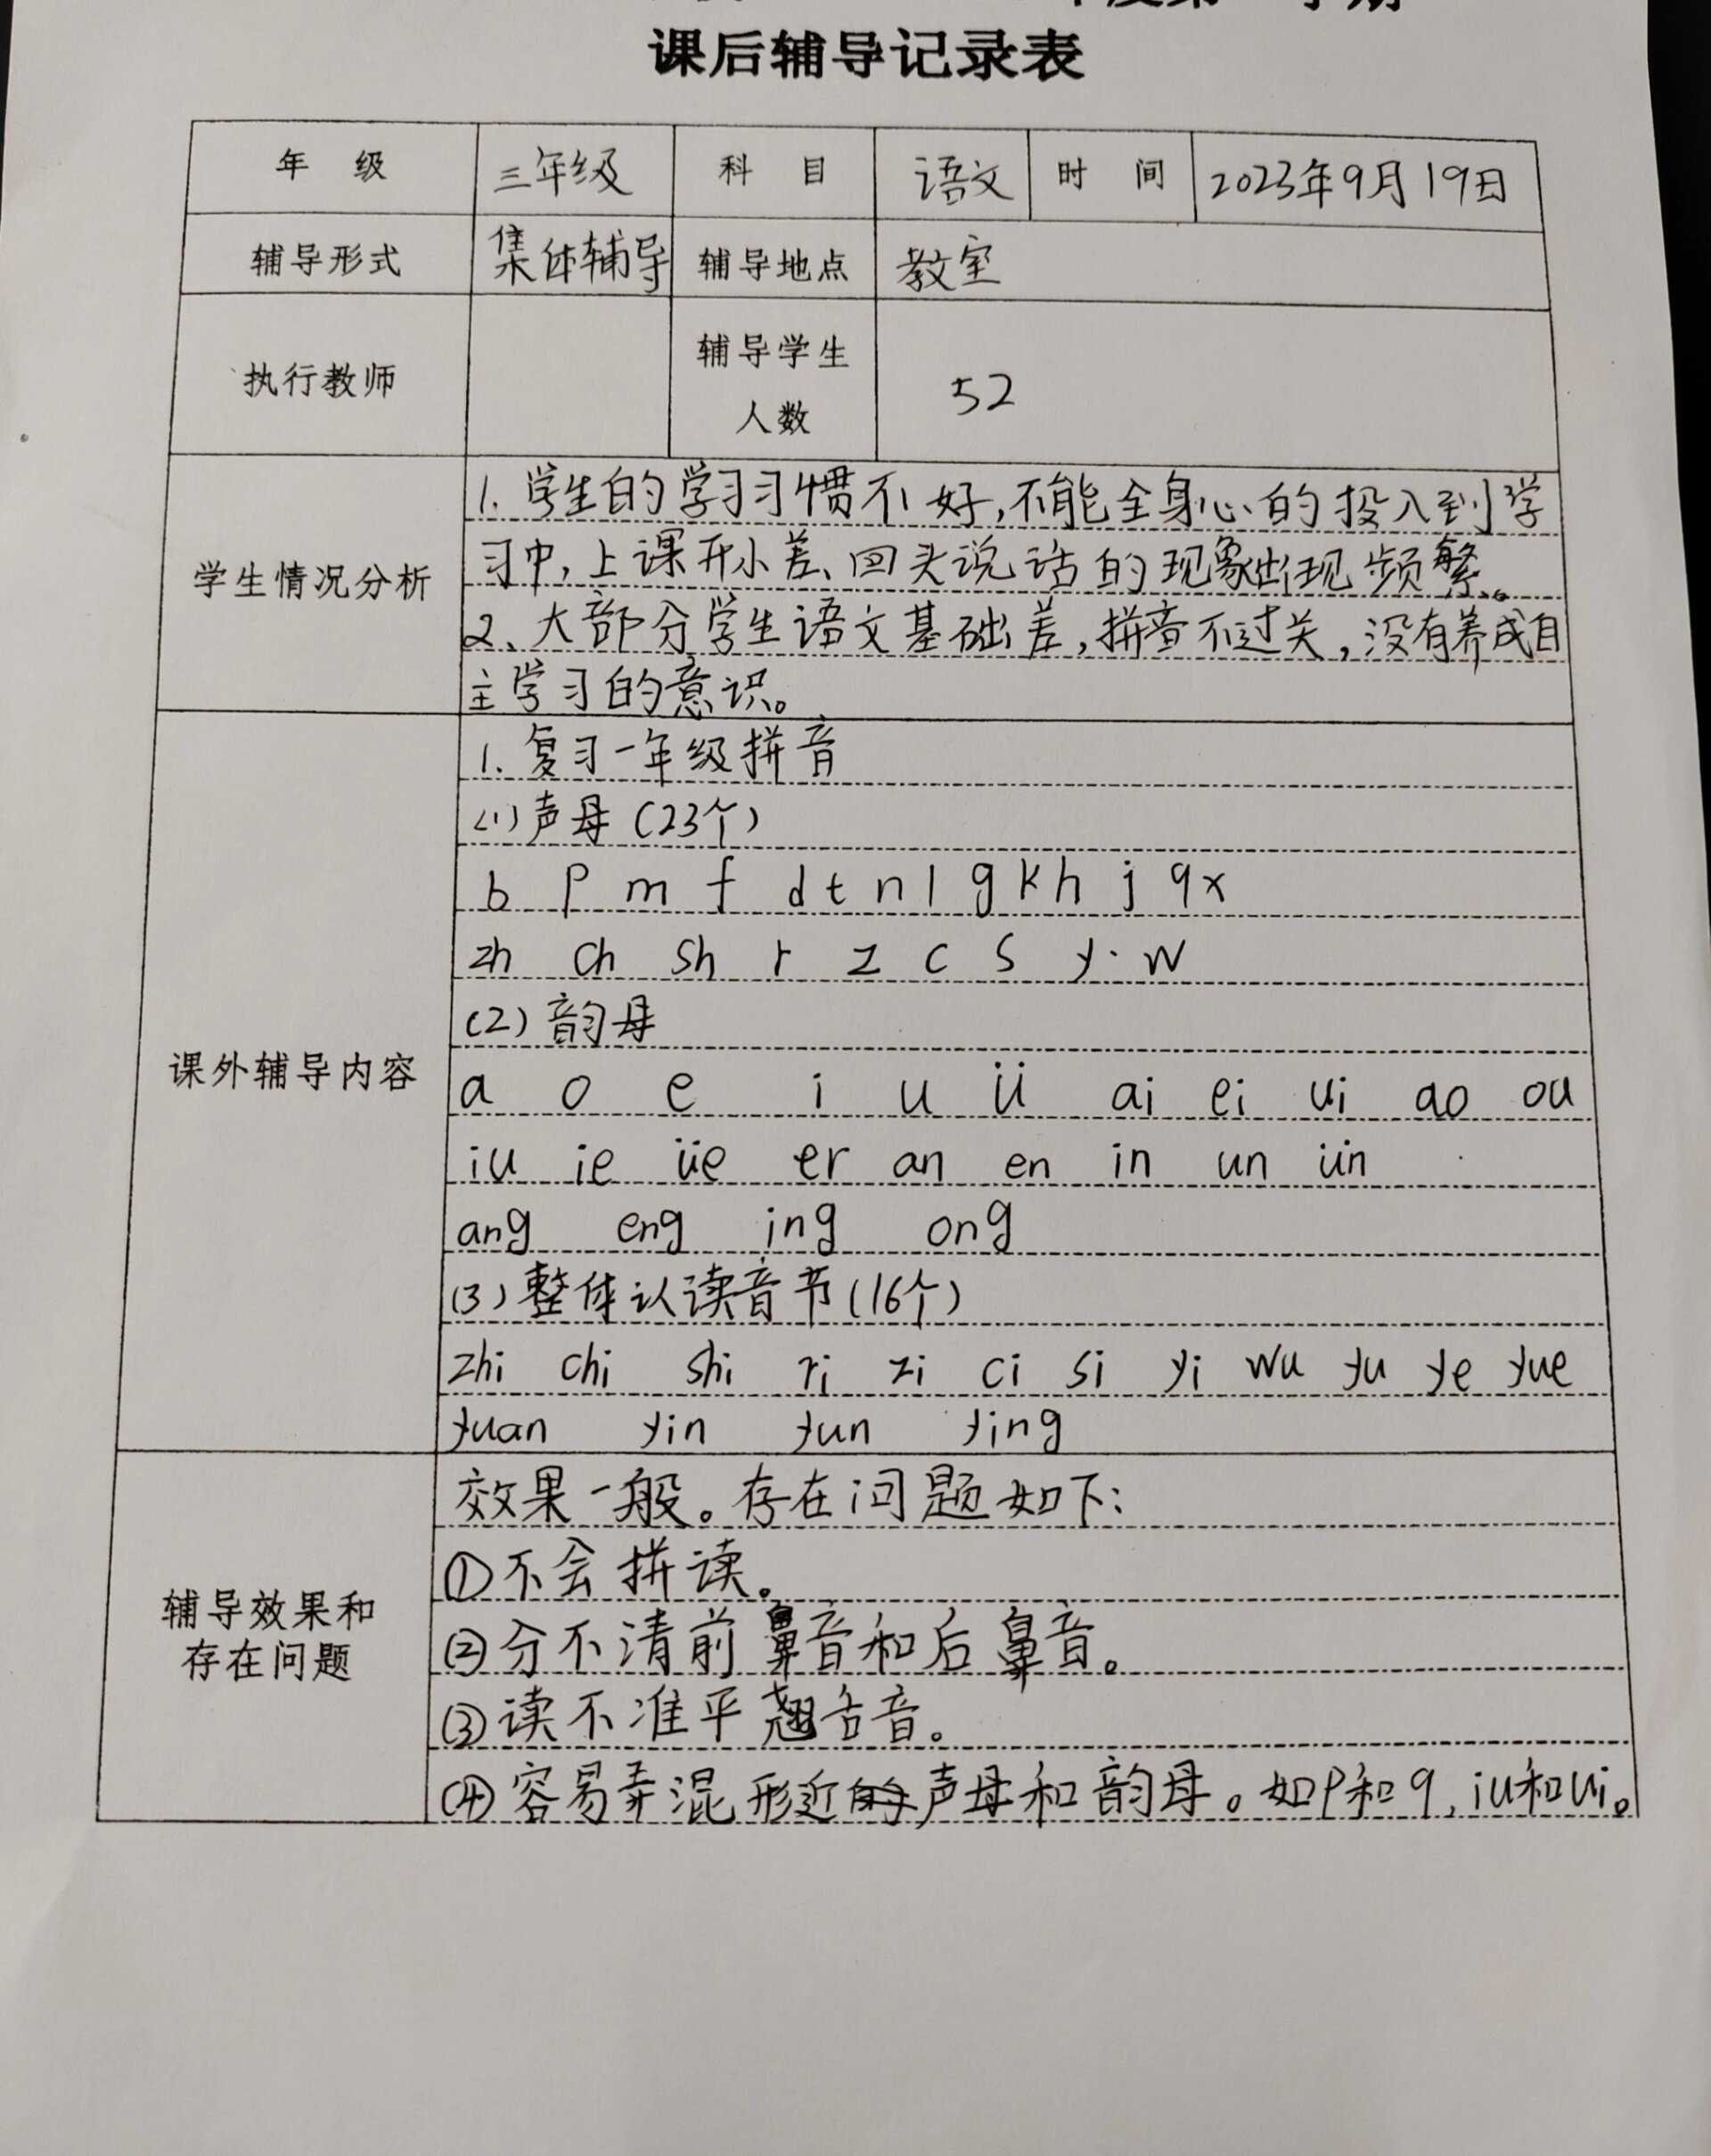 课后辅导记录表
年 级 三年级 科 目 语文 时 间 2023年9月19日
辅导形式 集体辅导 辅导地点 教室
执行教师 辅导学生人数 52
学生情况分析
1. 学生的学习习惯不好,不能全身心的投入到学
习中,上课开小差、回头说话的现象出现频繁。
2、大部分学生语文基础差,拼音不过关,没有养成自
主学习的意识。
课外辅导内容
1. 复习一年级拼音
(1)声母(23个)
b p m f d t n l g k h j q x
zh ch sh r z c s y w
(2)韵母
a o e i u ü ai ei ui ao ou
iu ie üe er an en in un ün
ang eng ing ong
(3)整体认读音节(16个)
zhi chi shi ri zi ci si yi wu yu ye yue
yuan yin yun ying
辅导效果和
存在问题
效果一般。存在问题如下:
①不会拼读。
②分不清前鼻音和后鼻音。
③读不准平翘舌音。
④容易弄混形近的声母和韵母。如p和q,iu和ui。